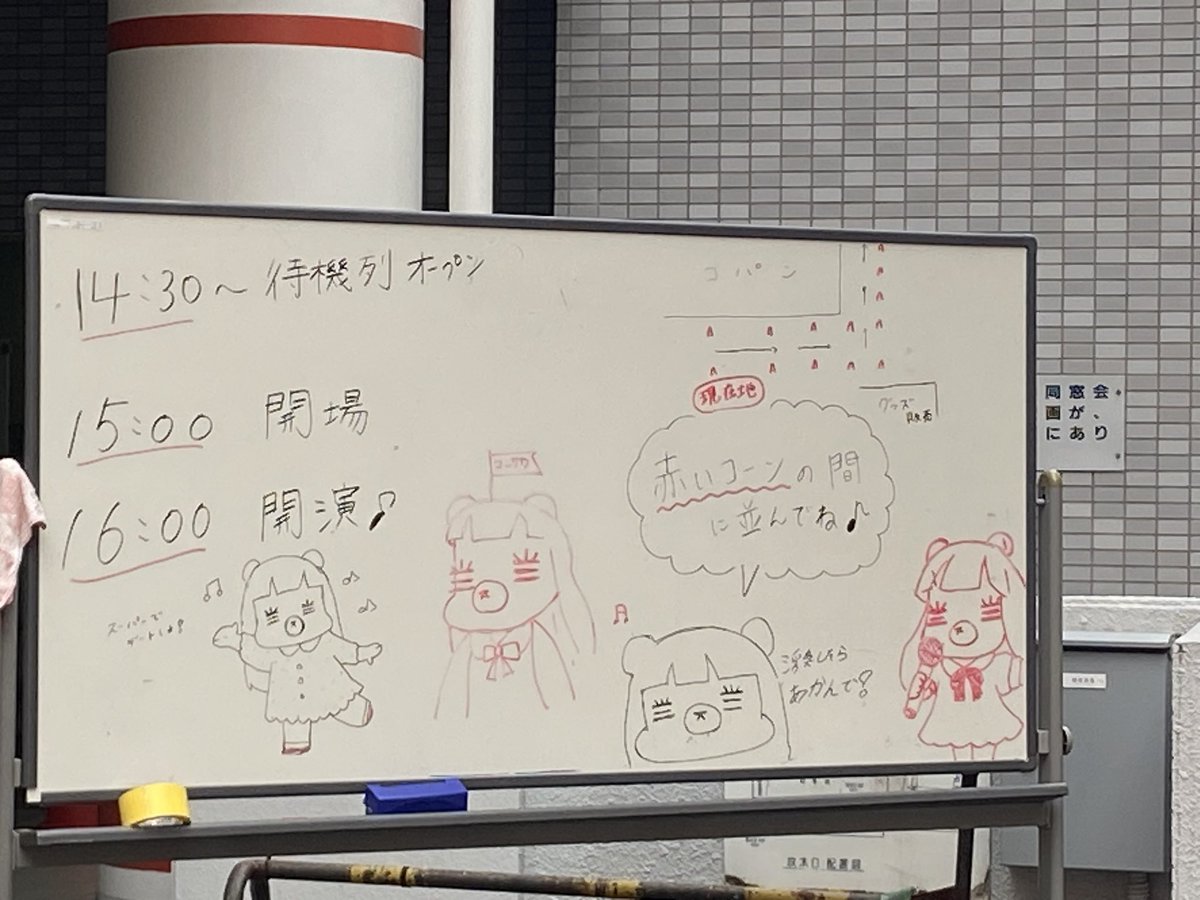 14:30〜 待機列 オープン
15:00 開場
16:00 開演♪
コパン
現在地
グッズ
販売
赤いコーンの間
に並んでね♪
スーパーで
デートしよ?
したら
あかんで?
同窓会
画が、
にあり
放水口 配置図